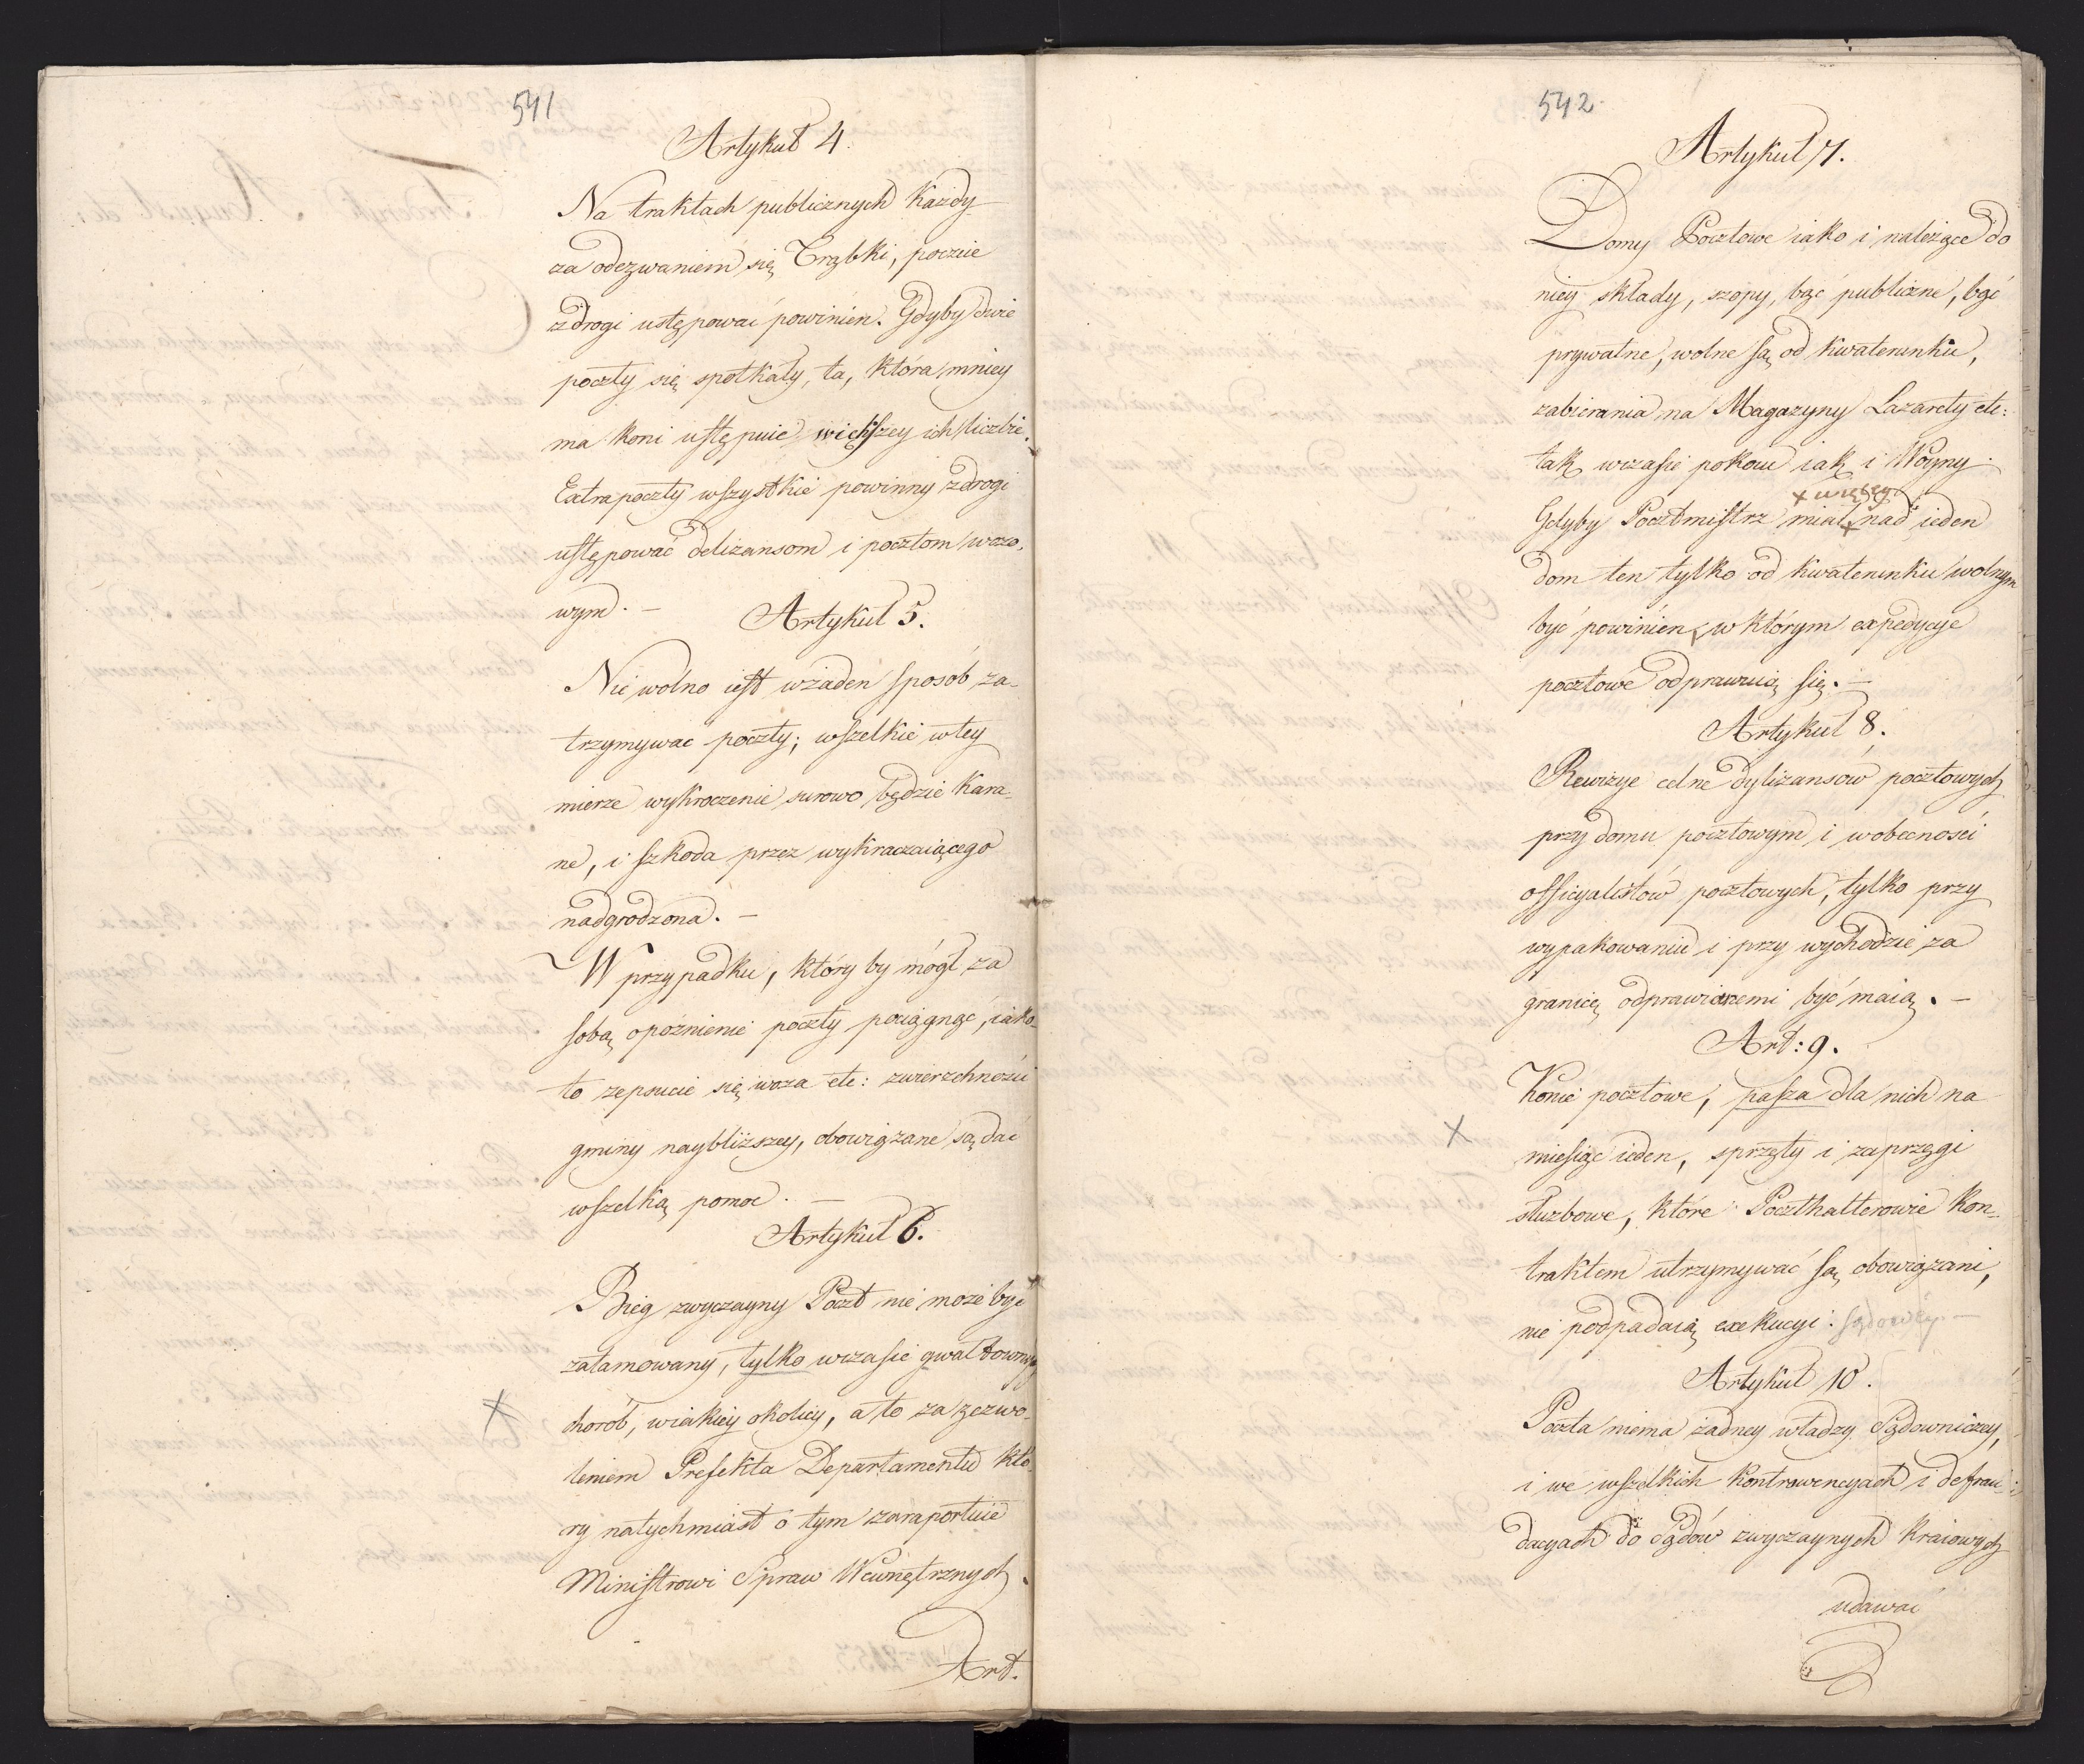 541
Artykuł 4.
Na traktach publicznych każdy
za odezwaniem się Trąbki, poczcie
z drogi ustępować powinien. Gdyby dwie
poczty się spotkały, ta, która mniey
ma koni ustępuie większey ich liczbie.
Extrapoczty wszystkie powinny z drogi
ustępować deliżansom i pocztom wozo-
wym. —
Artykuł 5.
Nie wolno iest w żaden sposób za-
trzymywac poczty; wszelkie w tey
mierze wykroczenie surowo będzie kara-
ne, i szkoda przez wykraczaiącego
nadgrodzona. —
W przypadku, który by mógł za
sobą opoźnienie poczty pociągnąć, iako-
to zepsucie się woza etc: zwierzchności
gminy naybliższey, obowiązane są dać
wszelką pomoc. —
Artykuł 6.
Bieg zwyczayny Poczt nie może być
zatamowany, tylko w czasie gwałtownych
chorób, w iakiey okolicy, a to za zezwo-
leniem Prefekta Departamentu któ-
ry natychmiast o tym zaraportuie
Ministrowi Spraw Wewnętrznych.
Art.
542.
Artykuł 7.
Domy Pocztowe iako i należące do
niey składy, szopy, bąć publiczne, bąć
prywatne, wolne są od kwaterunku,
zabierania na Magazyny Lazarety etc:
tak w czasie pokoiu iak i Woyny.
x więcey
Gdyby Pocztmistrz miał x nad ieden
dom ten tylko od kwaterunku wolnym
być powinien, w którym expedycye
pocztowe odprawuią się. —
Artykuł 8.
Rewizye celne dyliżansów pocztowych
przy domu pocztowym i w obecności
officyalistów pocztowych, tylko przy
wypakowaniu i przy wychodzie za
granicę odprawianemi być maią. —
Art: 9.
Konie pocztowe, pasza dla nich na
miesiąc ieden, sprzęty i zaprzęgi
służbowe, które Poczthalterowie kon-
traktem utrzymywać są obowiązani,
nie podpadaią exekucyi: sądowéy. —
Artykuł 10.
Poczta niema żadney władzy Sądowniczey,
i we wszelkich kontrawencyach i defrau-
dacyach do Sądów zwyczaynych kraiowych
udawać